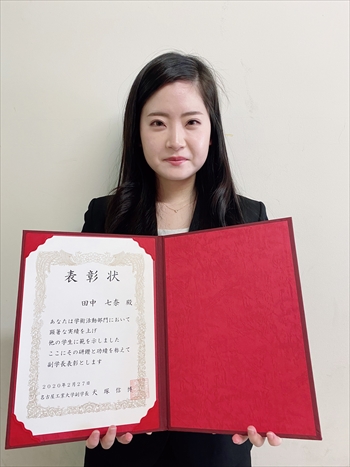 表彰状
田中 七奈 殿
あなたは学術活動部門において
顕著な実績を上げ
他の学生に範を示しました
ここにその研鑽と功績を称えて
副学長表彰とします
2020年2月27日
名古屋工業大学副学長 犬塚 信博